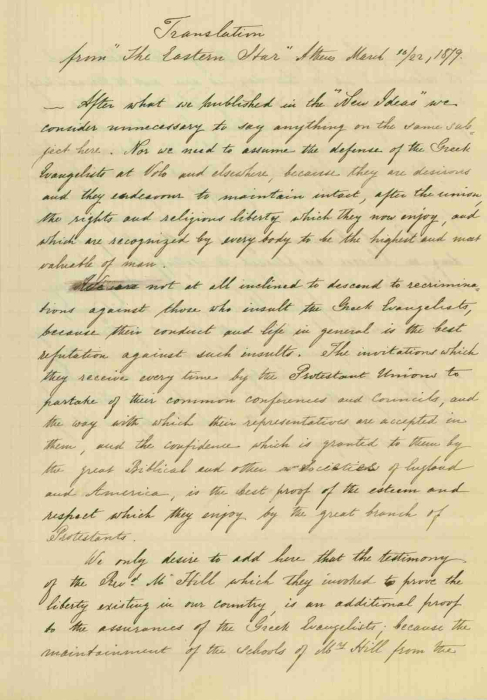 Translation
from "The Eastern Star" Athens March 10/22, 1879.
— After what we published in the "New Ideas" we
consider unnecessary to say anything on the same sub-
ject here. Nor we need to assume the defense of the Greek
Evangelists at Volo and elsewhere, because they are desirous
and they endeavour to maintain intact, after the union,
the rights and religious liberty which they now enjoy, and
which are recognized by every body to be the highest and most
valuable of man.
We are not at all inclined to descend to recrimina-
tions against those who insult the Greek Evangelists,
because their conduct and life in general is the best
refutation against such insults. The invitations which
they receive every time by the Protestant Unions to
partake of their common conferences and Councils, and
the way with which their representatives are accepted in
them, and the confidence which is granted to them by
the great Biblical and other societies of England
and America, is the best proof of the esteem and
respect which they enjoy by the great branch of
Protestants.
We only desire to add here that the testimony
of the Revd. Mr Hill which they invoked to prove the
liberty existing in our country, is an additional proof
to the assurances of the Greek Evangelists; because the
maintainment of the schools of Mr Hill from the